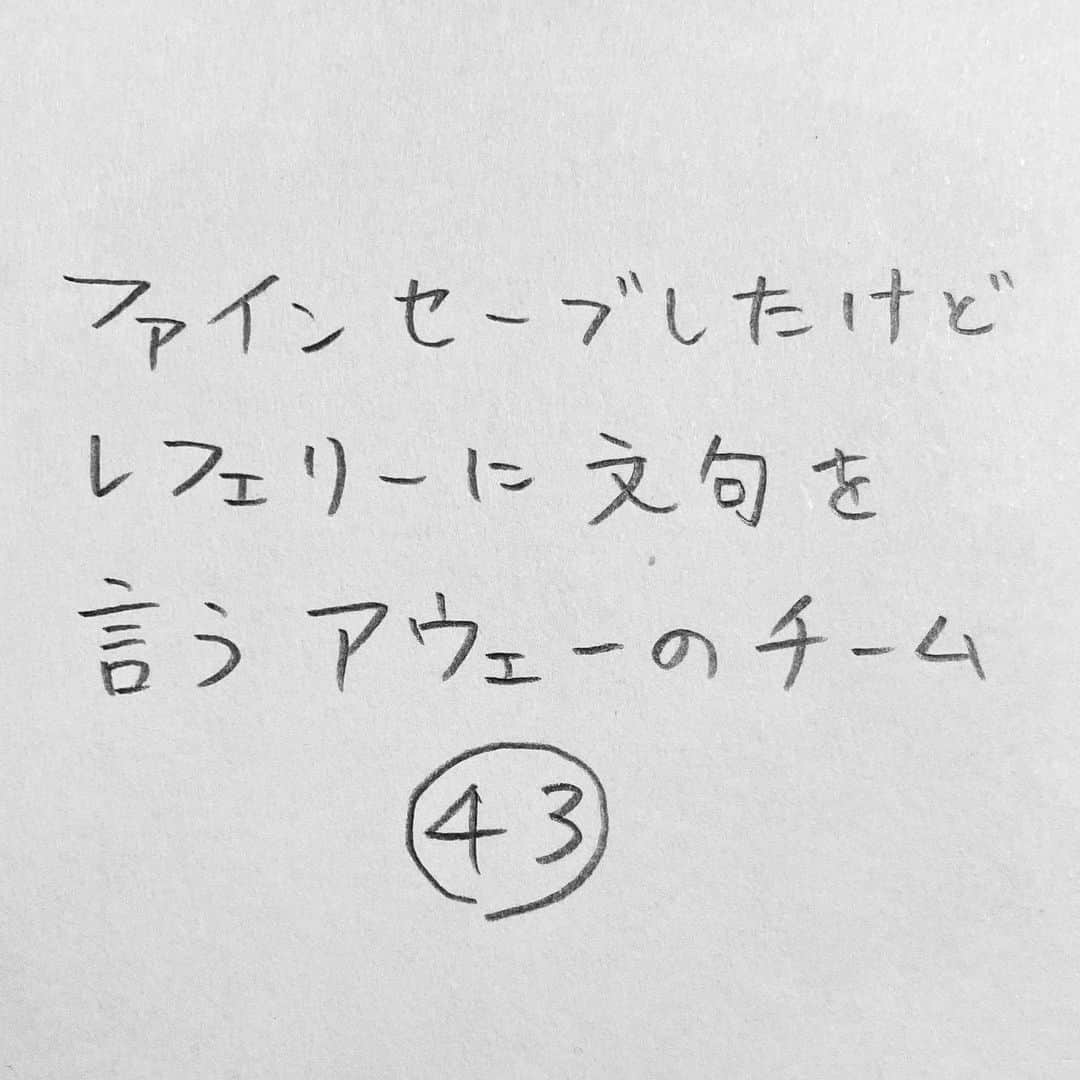 ファインセーブしたけど
レフェリーに文句を
言うアウェーのチーム
43